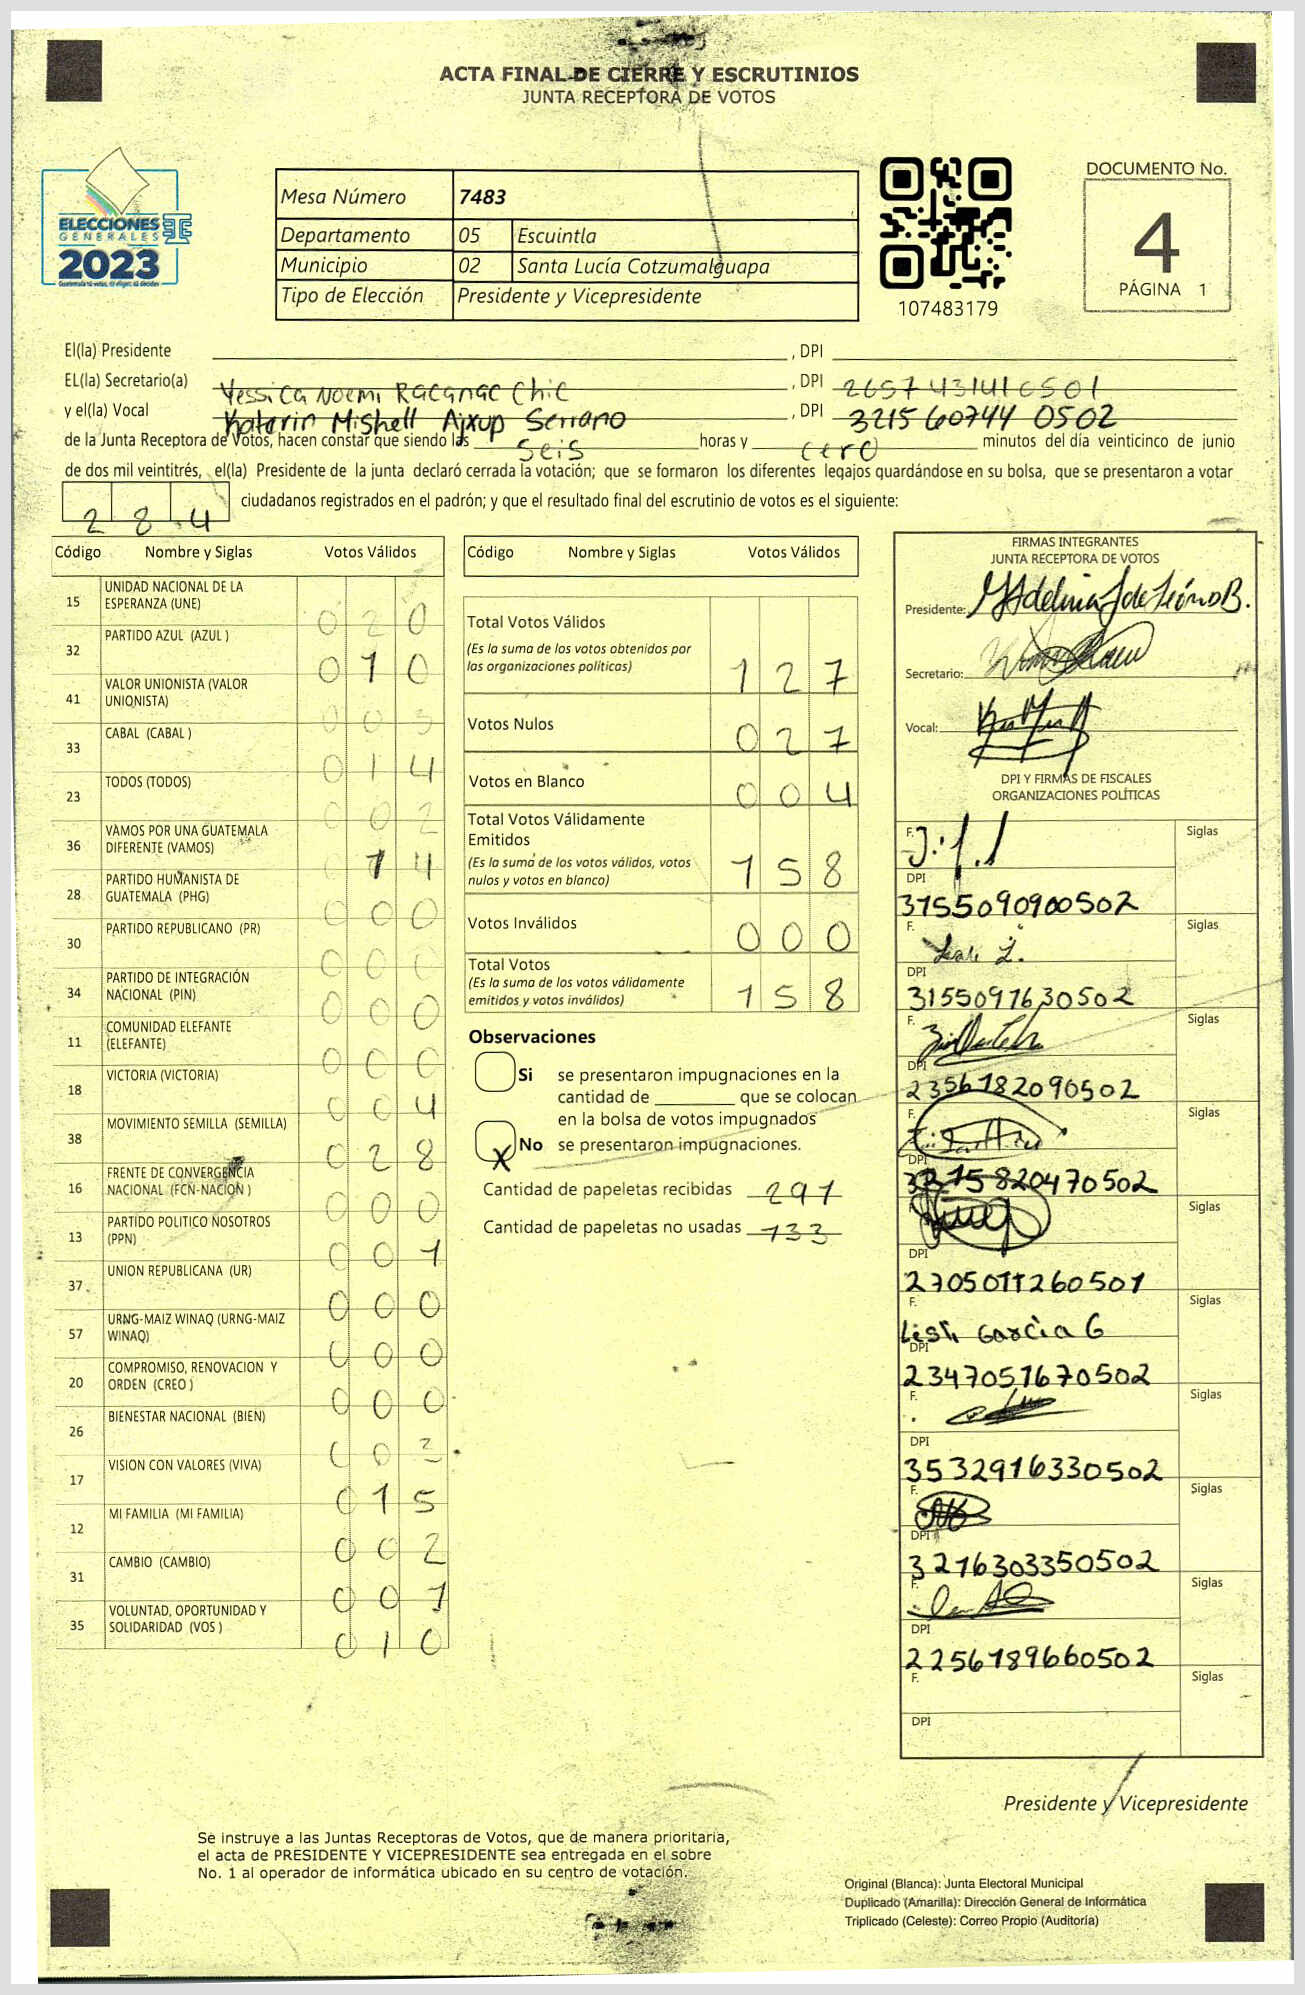 ACTA FINAL DE CIERRE Y ESCRUTINIOS
JUNTA RECEPTORA DE VOTOS
ELECCIONES
GENERALES
2023
Mesa Número 7483
Departamento 05 Escuintla
Municipio 02 Santa Lucía Cotzumalguapa
Tipo de Elección Presidente y Vicepresidente
107483179
DOCUMENTO No.
4
PÁGINA 1
El(la) Presidente , DPI
EL(la) Secretario(a) Yessica Noemi Racanac Chic , DPI 2657431416501
y el(la) Vocal Katerin Mishell Ajxup Serrano , DPI 3215607440502
de la Junta Receptora de Votos, hacen constar que siendo las seis horas y cero minutos del día veinticinco de junio
de dos mil veintitrés, el(la) Presidente de la junta declaró cerrada la votación; que se formaron los diferentes legajos guardándose en su bolsa, que se presentaron a votar
284 ciudadanos registrados en el padrón; y que el resultado final del escrutinio de votos es el siguiente:
Código Nombre y Siglas Votos Válidos
15 UNIDAD NACIONAL DE LA ESPERANZA (UNE) 020
32 PARTIDO AZUL (AZUL ) 010
41 VALOR UNIONISTA (VALOR UNIONISTA) 003
33 CABAL (CABAL ) 014
23 TODOS (TODOS) 002
36 VAMOS POR UNA GUATEMALA DIFERENTE (VAMOS) 014
28 PARTIDO HUMANISTA DE GUATEMALA (PHG) 000
30 PARTIDO REPUBLICANO (PR) 000
34 PARTIDO DE INTEGRACIÓN NACIONAL (PIN) 000
11 COMUNIDAD ELEFANTE (ELEFANTE) 000
18 VICTORIA (VICTORIA) 004
38 MOVIMIENTO SEMILLA (SEMILLA) 028
16 FRENTE DE CONVERGENCIA NACIONAL (FCN-NACION ) 000
13 PARTIDO POLITICO NOSOTROS (PPN) 001
37 UNION REPUBLICANA (UR) 000
57 URNG-MAIZ WINAQ (URNG-MAIZ WINAQ) 000
20 COMPROMISO, RENOVACION Y ORDEN (CREO ) 000
26 BIENESTAR NACIONAL (BIEN) 003
17 VISION CON VALORES (VIVA) 015
12 MI FAMILIA (MI FAMILIA) 002
31 CAMBIO (CAMBIO) 001
35 VOLUNTAD, OPORTUNIDAD Y SOLIDARIDAD (VOS ) 010
Código Nombre y Siglas Votos Válidos
Total Votos Válidos
(Es la suma de los votos obtenidos por
las organizaciones políticas) 127
Votos Nulos 027
Votos en Blanco 004
Total Votos Válidamente
Emitidos
(Es la suma de los votos válidos, votos
nulos y votos en blanco) 158
Votos Inválidos 000
Total Votos
(Es la suma de los votos válidamente
emitidos y votos inválidos) 158
Observaciones
Si se presentaron impugnaciones en la
cantidad de que se colocan
en la bolsa de votos impugnados
X No se presentaron impugnaciones.
Cantidad de papeletas recibidas 291
Cantidad de papeletas no usadas 133
FIRMAS INTEGRANTES
JUNTA RECEPTORA DE VOTOS
Presidente:
Secretario:
Vocal:
DPI Y FIRMAS DE FISCALES
ORGANIZACIONES POLÍTICAS
F. Siglas
DPI
3155090900502
F. Siglas
DPI
3155091630502
F. Siglas
DPI
2356182090502
F. Siglas
DPI
F. Siglas
DPI
2705011260501
F. Siglas
Garcia G
DPI
2347051670502
F. Siglas
DPI
3532916330502
F. Siglas
DPI
3216303350502
F. Siglas
DPI
2256189660502
F. Siglas
DPI
Presidente y Vicepresidente
Se instruye a las Juntas Receptoras de Votos, que de manera prioritaria,
el acta de PRESIDENTE Y VICEPRESIDENTE sea entregada en el sobre
No. 1 al operador de informática ubicado en su centro de votación.
Original (Blanca): Junta Electoral Municipal
Duplicado (Amarilla): Dirección General de Informática
Triplicado (Celeste): Correo Propio (Auditoría)